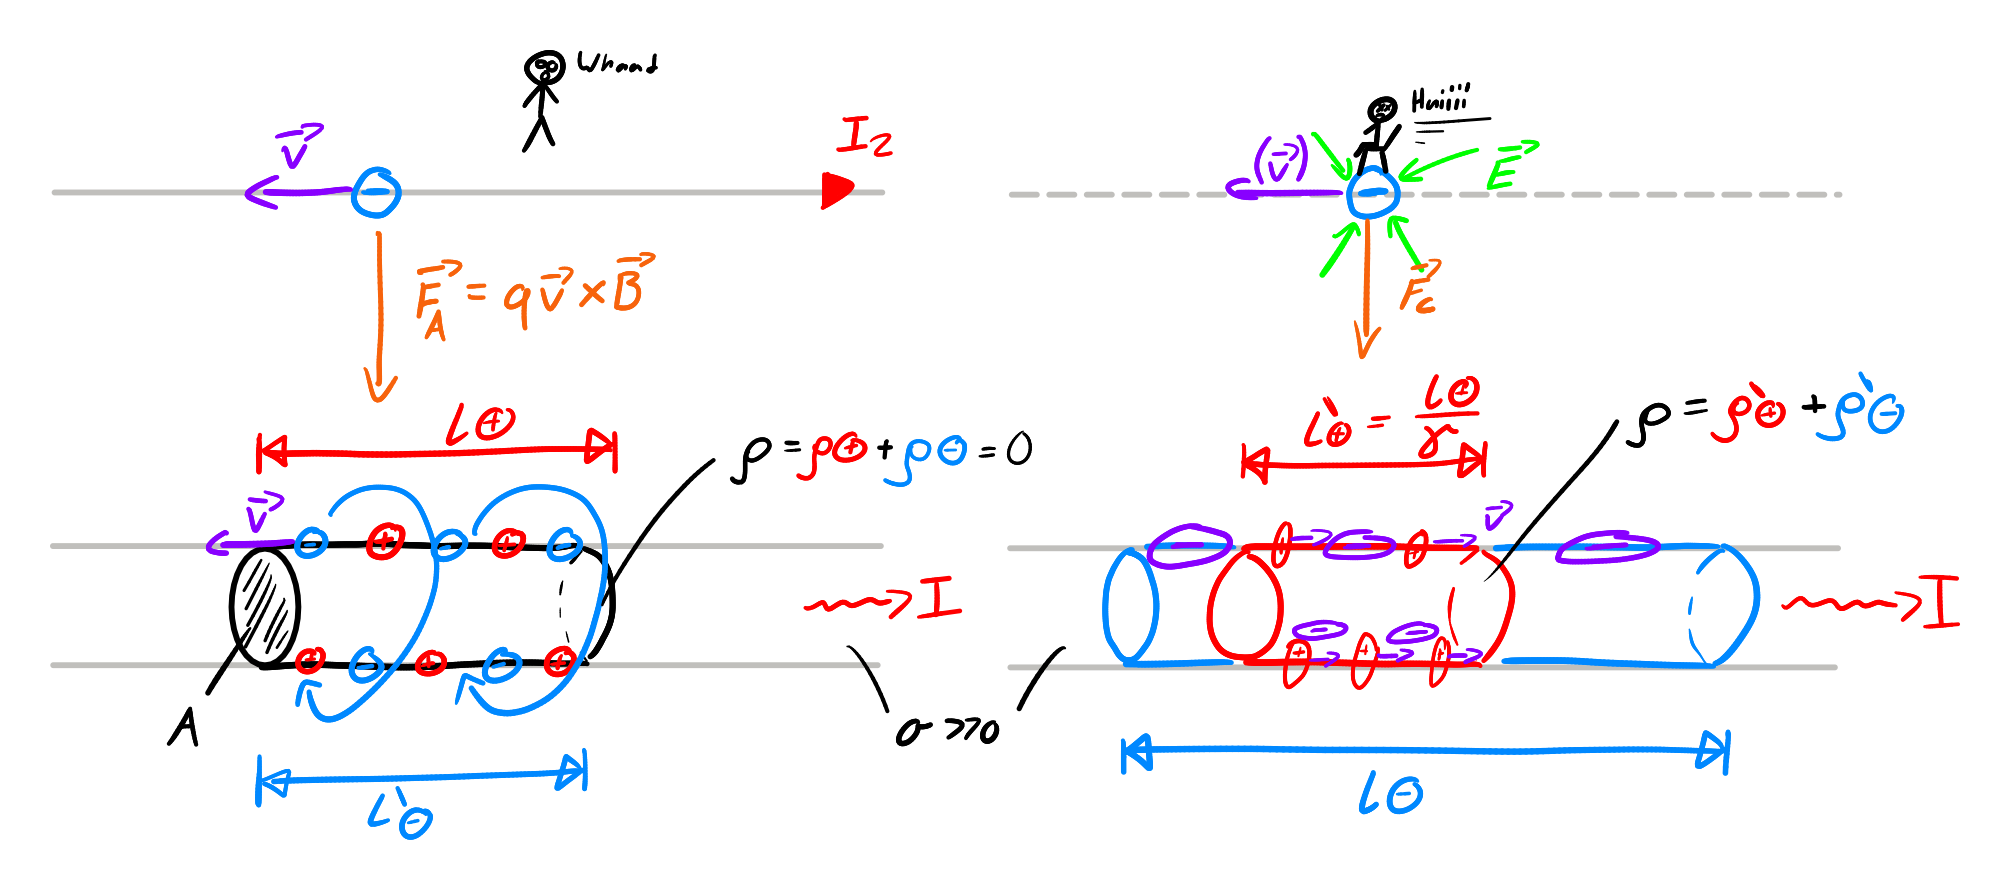 Whaad
v⃗
I₂
−
F⃗_A = q v⃗ × B⃗
l⊕
ρ = ρ⊕ + ρ⊖ = 0
v⃗
+
+
I
+
+
+
A
L'⊖
Huiiii
(v⃗)
E⃗
−
F⃗_c
L'⊕ = l⊕/γ
ρ = ρ'⊕ + ρ'⊖
v⃗
− + − + −
I
− −
+ + +
σ >> 0
l⊖